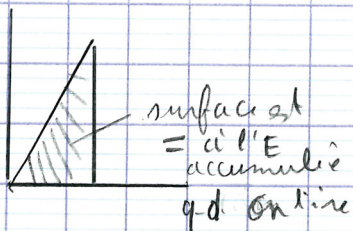 surface est
= à l'E
accumulée
q.d. on tire